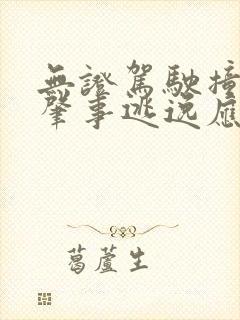 無證駕駛撞
肇事逃逸應
葛蘆生